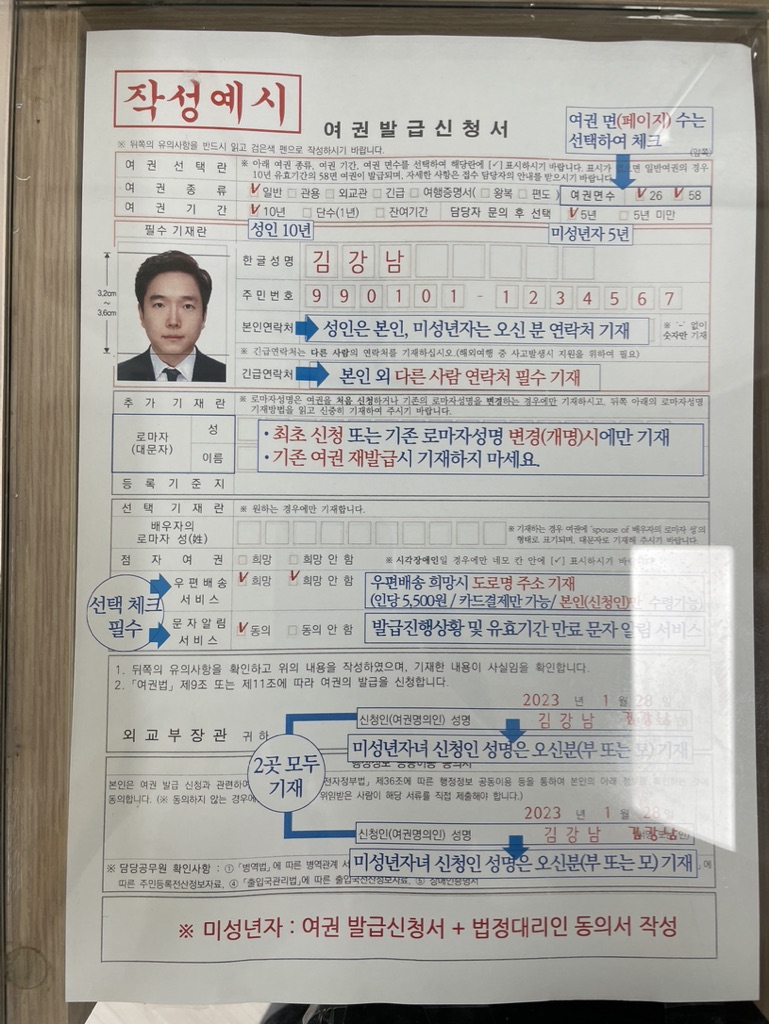 작성예시
여권발급신청서
여권 면(페이지) 수는
선택하여 체크
※ 뒤쪽의 유의사항을 반드시 읽고 검은색 펜으로 작성하시기 바랍니다.
(앞쪽)
여권선택란 ※ 아래 여권 종류, 여권 기간, 여권 면수를 선택하여 해당란에 [✓] 표시하시기 바랍니다. 표시가 없으면 일반여권의 경우
10년 유효기간의 58면 여권이 발급되며, 자세한 사항은 접수 담당자의 안내를 받으시기 바랍니다.
여권종류 ☑ 일반 □ 관용 □ 외교관 □ 긴급 □ 여행증명서( □ 왕복 □ 편도 ) 여권면수 ☑ 26 ☑ 58
여권기간 ☑ 10년 □ 단수(1년) □ 잔여기간 담당자 문의 후 선택 ☑ 5년 □ 5년 미만
필수 기재란 성인 10년 미성년자 5년
3.2cm
~
3.6cm
한글성명 김 강 남
주민번호 9 9 0 1 0 1 - 1 2 3 4 5 6 7
본인연락처 성인은 본인, 미성년자는 오신 분 연락처 기재 ※ '-' 없이
숫자만 기재
※ 긴급연락처는 다른 사람의 연락처를 기재하십시오.(해외여행 중 사고발생시 지원을 위하여 필요)
긴급연락처 본인 외 다른 사람 연락처 필수 기재
추가기재란 ※ 로마자성명은 여권을 처음 신청하거나 기존의 로마자성명을 변경하는 경우에만 기재하시고, 뒤쪽 아래의 로마자성명
기재방법을 읽고 신중히 기재하여 주시기 바랍니다.
로마자
(대문자)
성
이름
• 최초 신청 또는 기존 로마자성명 변경(개명)시에만 기재
• 기존 여권 재발급시 기재하지 마세요.
등록기준지
선택기재란 ※ 원하는 경우에만 기재합니다.
배우자의
로마자 성(姓)
※ 기재하는 경우 여권에 'spouse of 배우자의 로마자 성'의
형태로 표기되며, 대문자로 기재해 주시기 바랍니다.
점자여권 □ 희망 □ 희망 안 함 ※ 시각장애인일 경우에만 네모 칸 안에 [✓] 표시하시기
선택 체크
필수
우편배송
서비스
☑ 희망 ☑ 희망 안 함
우편배송 희망시 도로명 주소 기재
(인당 5,500원 / 카드결제만 가능/ 본인(신청인)만 수령가능)
문자알림
서비스
☑ 동의 □ 동의 안 함
발급진행상황 및 유효기간 만료 문자 알림 서비스
1. 뒤쪽의 유의사항을 확인하고 위의 내용을 작성하였으며, 기재한 내용이 사실임을 확인합니다.
2. 「여권법」 제9조 또는 제11조에 따라 여권의 발급을 신청합니다.
2023 년 1 월 28 일
신청인(여권명의인) 성명 김강남 김강남
외교부장관 귀하
미성년자녀 신청인 성명은 오신분(부 또는 모) 기재
2곳 모두
기재
본인은 여권 발급 신청과 관련하여
전자정부법」 제36조에 따른 행정정보 공동이용 등을 통하여 본인의 아래
동의합니다. (※ 동의하지 않는 경우에
위임받은 사람이 해당 서류를 직접 제출해야 합니다.)
2023 년 1 월 28 일
신청인(여권명의인) 성명 김강남 김강남
미성년자녀 신청인 성명은 오신분(부 또는 모) 기재
※ 담당공무원 확인사항 : ① 「병역법」에 따른 병역관계 서
따른 주민등록전산정보자료, ④ 「출입국관리법」에 따른 출입국전산정보자료, ⑤ 장애인증명서
※ 미성년자 : 여권 발급신청서 + 법정대리인 동의서 작성